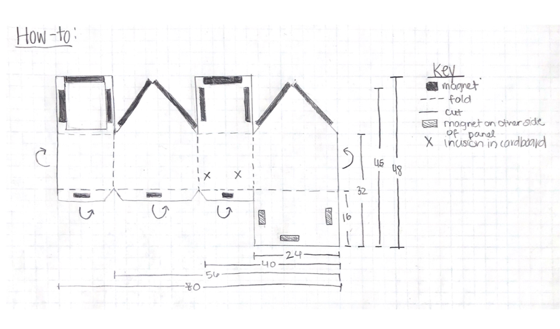 How-to:
Key
magnet
fold
cut
magnet on other side
of panel
X incision in cardboard
X X
32
46
48
16
24
40
56
70